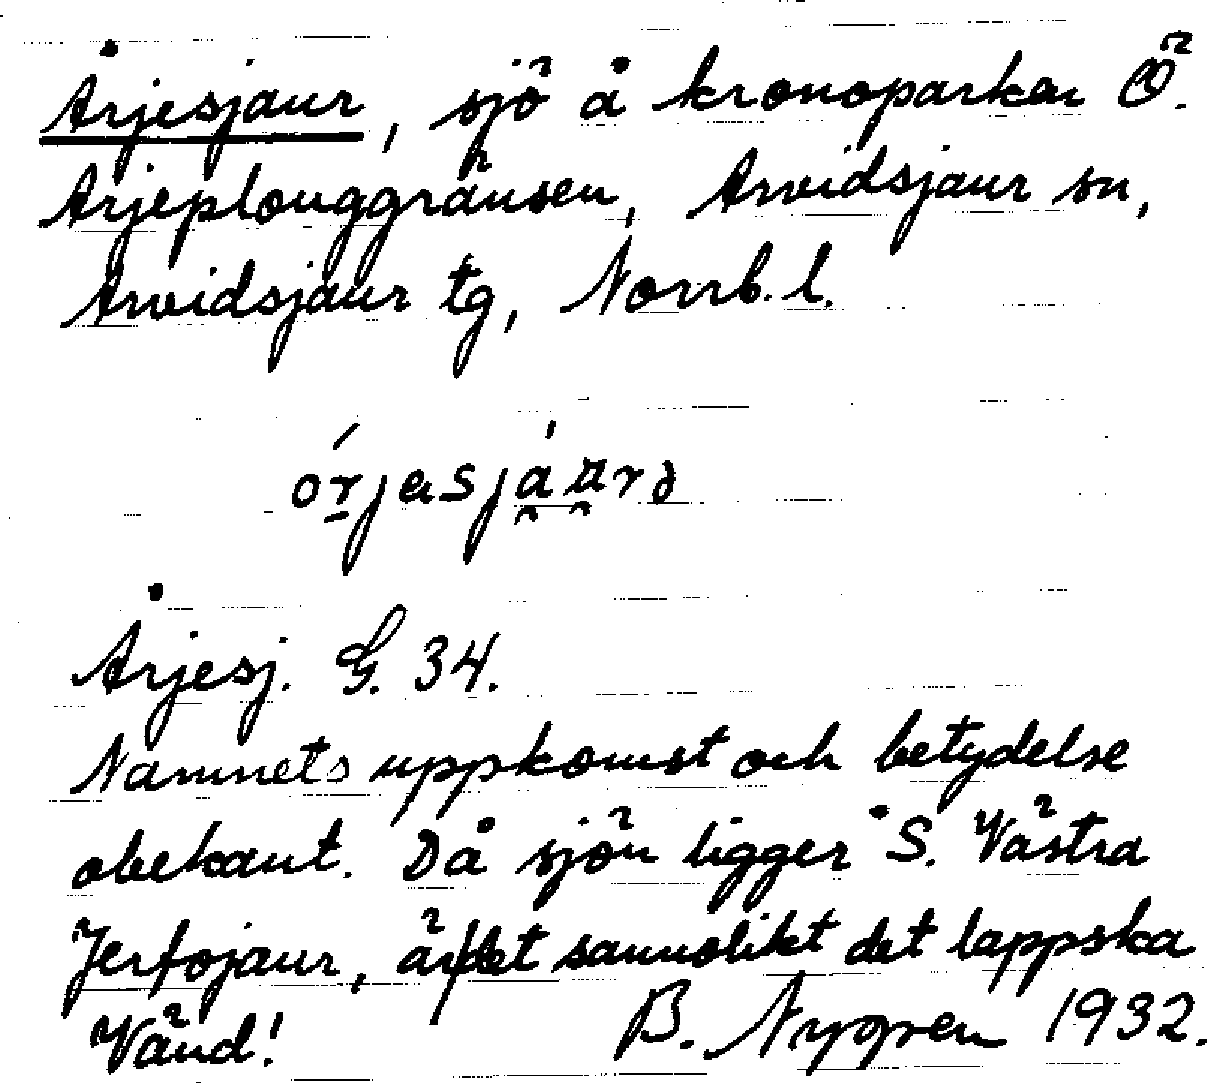 Årjesjaur, sjö å kronoparken Ö.
Arjeplouggränsen, Arvidsjaur sn,
Arvidsjaur tg, Norrb. l.
Årjesj. G. 34.
Namnets uppkomst och betydelse
obekant. Då sjön ligger S. Västra
Jerfojaur, är det sannolikt det lappska
Vänd! B. Nygren 1932.